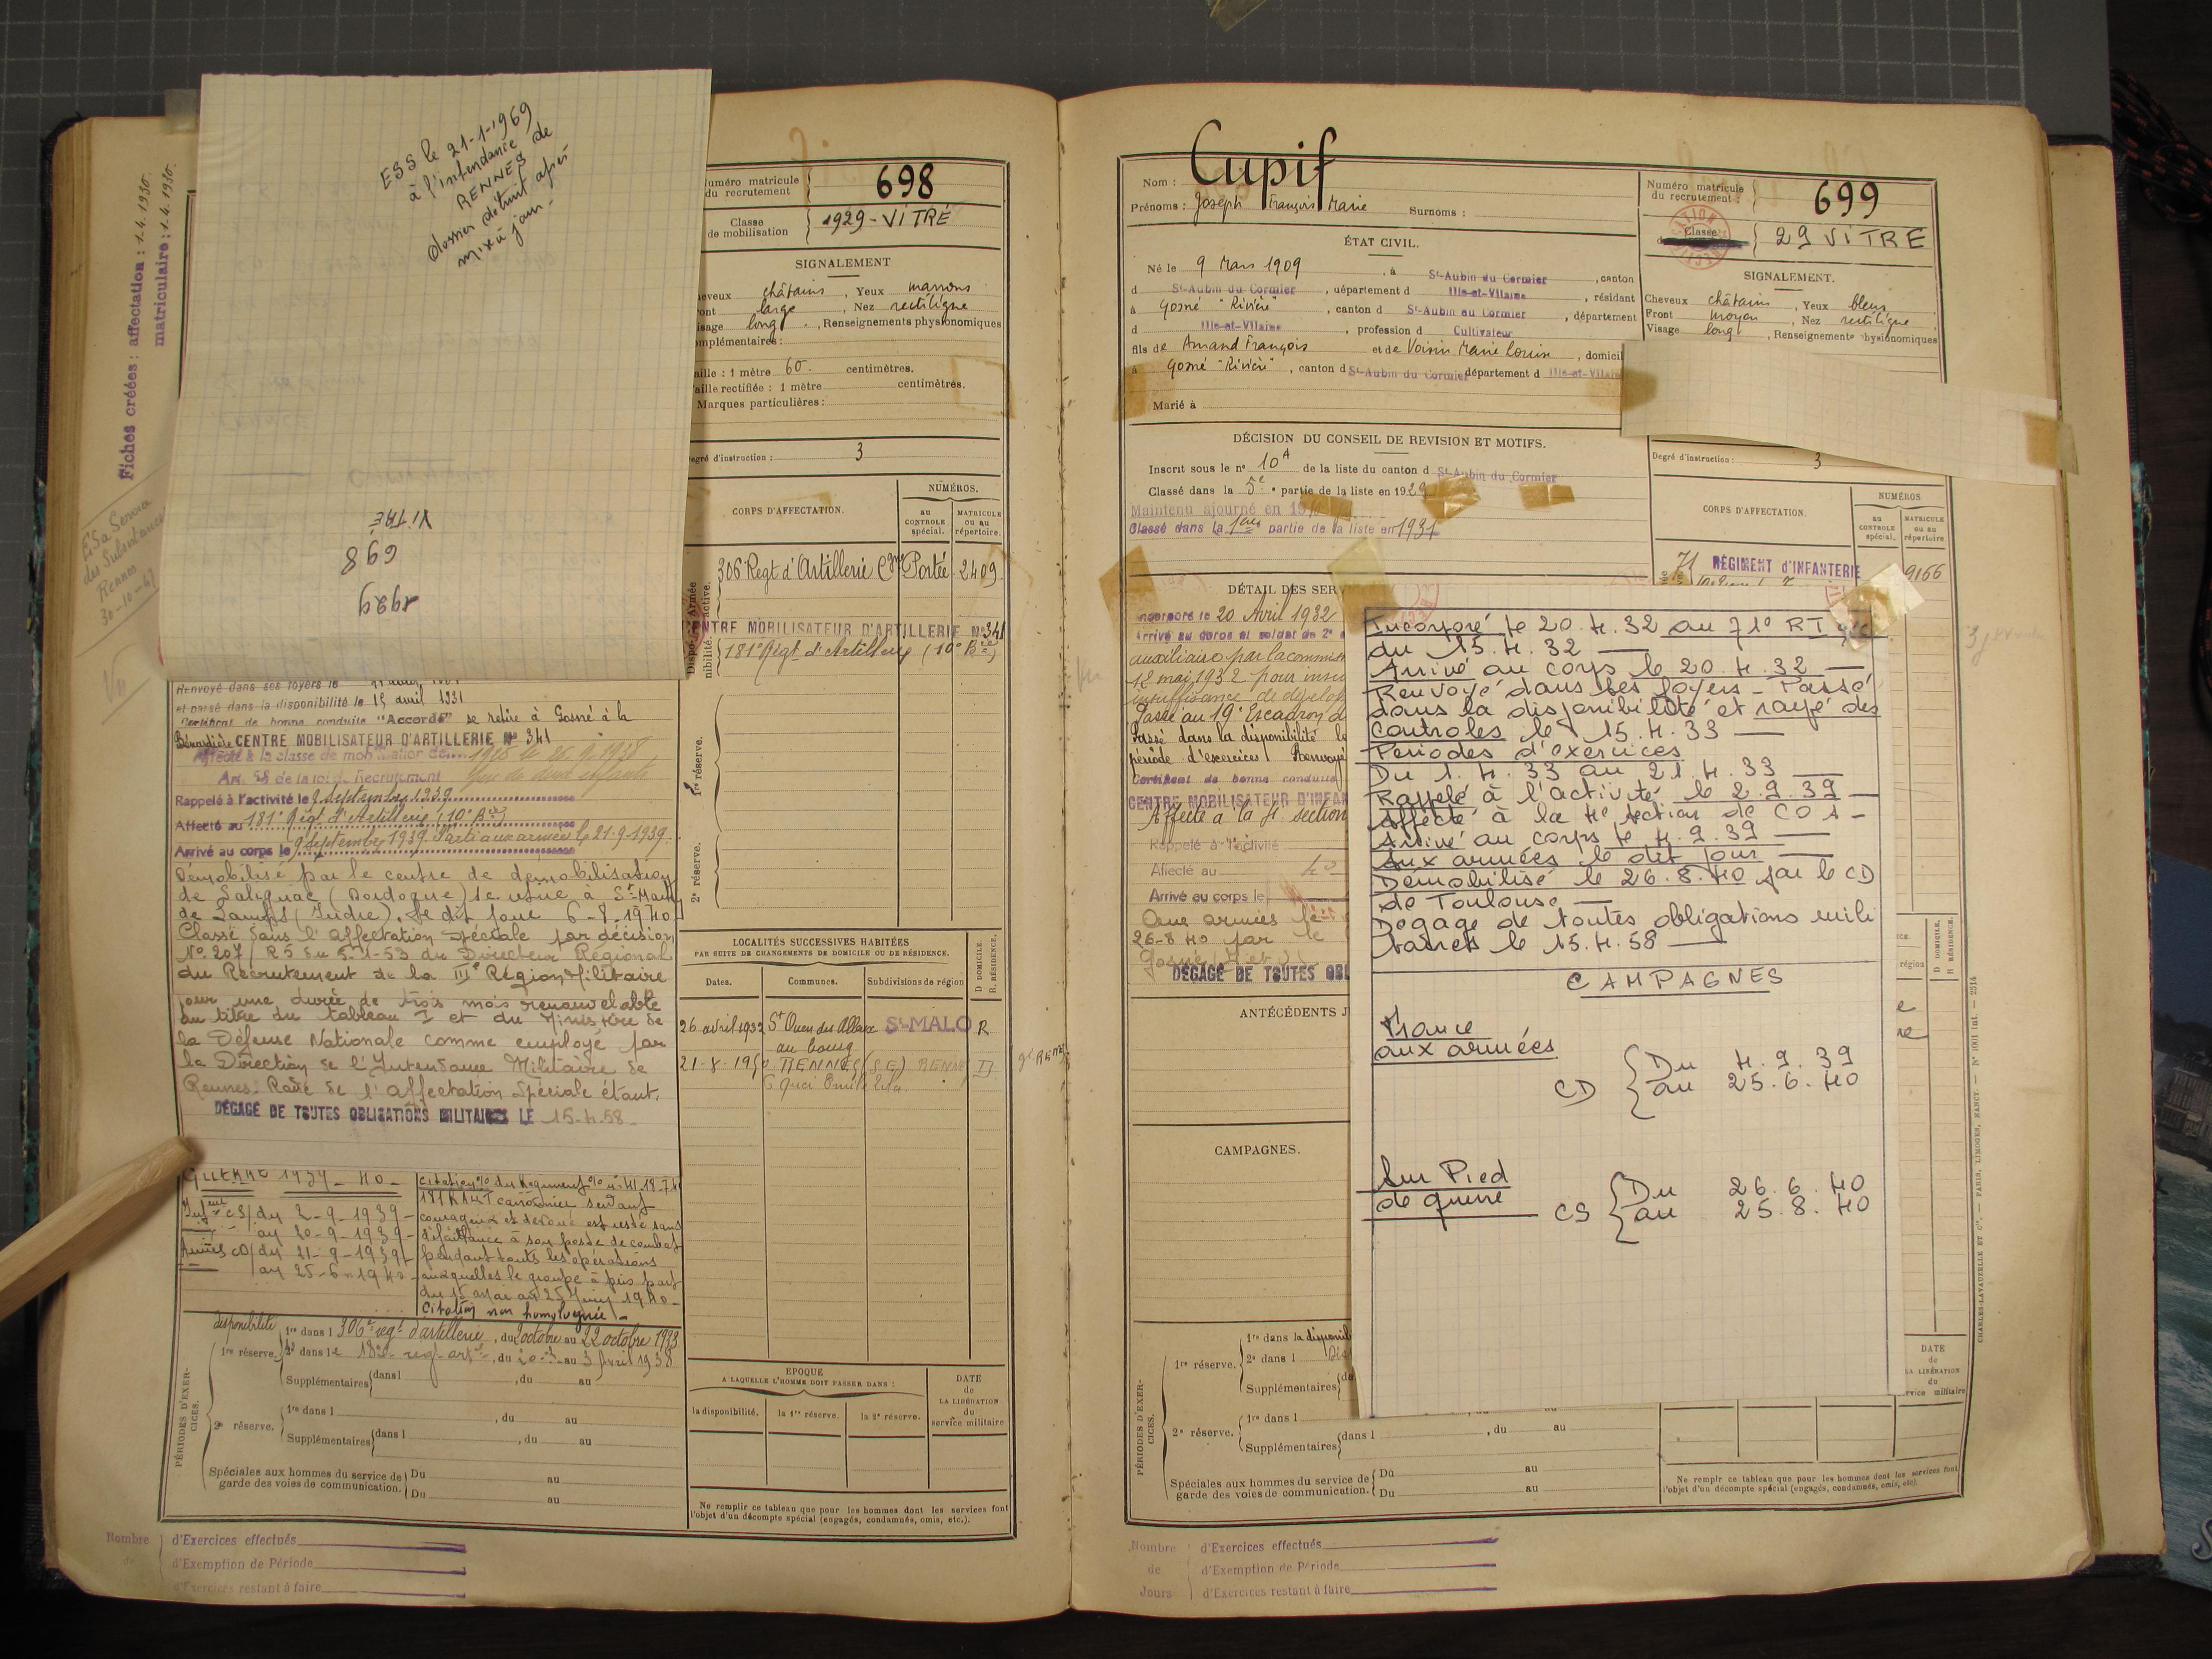 Fiches créées : affectation : 1.4.1930.
matriculaire : 1.4.1930.
ESS le 21-1-1969
à l'intendance
RENNES de
dossier détruit après
mix à jour -
VITRÉ
698
1929
Rennes
30-10-47
Numéro matricule
du recrutement
698
Classe
de mobilisation
1929 - VITRÉ
SIGNALEMENT
Cheveux châtains, Yeux marrons
Front large, Nez rectiligne
Visage long, Renseignements physionomiques
complémentaires :
Taille : 1 mètre 60. centimètres.
Taille rectifiée : 1 mètre centimètres.
Marques particulières :
Degré d'instruction : 3
CORPS D'AFFECTATION.
NUMÉROS.
au CONTROLE spécial.
MATRICULE ou au répertoire.
306e Regt d'Artillerie Portée 2409
CENTRE MOBILISATEUR D'ARTILLERIE No 341
181e Regt d'Artillerie (10e Bie)
Renvoyé dans ses foyers le
et passé dans la disponibilité le 15 avril 1931
Certificat de bonne conduite "Accordé" se retire à Gosné à la
Bénardière CENTRE MOBILISATEUR D'ARTILLERIE No 341
Affecté à la classe de mobilisation de
Art. 58 de la loi de Recrutement père de deux enfants
Rappelé à l'activité le 2 septembre 1939
Affecté au 181e Regt d'Artillerie (10e Bie)
Arrivé au corps le 9 septembre 1939. Parti aux armées le 21-9-1939.
Démobilisé par le centre de démobilisation
de Salignac (Dordogne) se retire à St Martin
de Lamps (Indre), le dit jour 6-8-1940
Classé dans l'affectation spéciale par décision
No 207/R5 du 5-1-53 du Directeur Régional
du Recrutement de la IIIe Région Militaire
pour une durée de trois mois renouvelable
au titre du tableau I et du Ministère de
la Défense Nationale comme employé par
la Direction de l'Intendance Militaire de
Rennes. Radié de l'affectation spéciale étant.
DÉGAGÉ DE TOUTES OBLIGATIONS MILITAIRES LE 15-4-58-
GUERRE 1939-40-
CS du 2-9-1939-
au 20-9-1939-
Armées CD du 21-9-1939-
au 25-6-1940-
Citation du Régiment
181e RALT canonnier servant
courageux et dévoué est resté sans
défaillance à son poste de combat
pendant toutes les opérations
auxquelles le groupe a pris part
du 15 mai au 25 juin 1940-
Citation non homologuée-
1re réserve.
2e réserve.
LOCALITÉS SUCCESSIVES HABITÉES
PAR SUITE DE CHANGEMENTS DE DOMICILE OU DE RÉSIDENCE.
Dates. Communes. Subdivisions de région D. DOMICILE. R. RÉSIDENCE.
26 avril 1932 St Ouen des Alleux St-MALO R
au bourg
21-8-1950 RENNES (SE) RENNES D
6 quai Emile Zola.
PÉRIODES D'EXERCICES.
disponibilité
1re réserve. 1re dans l 306e regt d'artillerie, du 2 octobre au 22 octobre 1933
2e dans le regt, du au 3 Avril 1938
Supplémentaires dans l , du au
2e réserve. 1re dans l , du au
Supplémentaires dans l , du au
Spéciales aux hommes du service de garde des voies de communication. Du au
Du au
EPOQUE
A LAQUELLE L'HOMME DOIT PASSER DANS :
la disponibilité. la 1re réserve. la 2e réserve.
DATE
de
LA LIBÉRATION
du
service militaire
Ne remplir ce tableau que pour les hommes dont les services font
l'objet d'un décompte spécial (engagés, condamnés, omis, etc.).
Nombre
de
d'Exercices effectués
d'Exemption de Période
d'Exercices restant à faire
Nom : Cupif
Prénoms : Joseph François Marie Surnoms :
Numéro matricule
du recrutement :
699
Classe
29 VITRÉ
ÉTAT CIVIL.
Né le 9 Mars 1909, à St-Aubin du Cormier, canton
d St-Aubin du Cormier, département d Ille-et-Vilaine, résidant
à Gosné "Rivière", canton d St-Aubin du Cormier, département
d Ille-et-Vilaine, profession d Cultivateur
fils de Amand François et de Voisin Marie Louise, domicil
à Gosné "Rivière", canton d St-Aubin du Cormier département d Ille-et-Vilaine
Marié à
SIGNALEMENT.
Cheveux châtains, Yeux bleus
Front moyen, Nez rectiligne
Visage long, Renseignements physionomiques
DÉCISION DU CONSEIL DE REVISION ET MOTIFS.
Inscrit sous le no 10A de la liste du canton d St-Aubin du Cormier
Classé dans la 5e partie de la liste en 1929
Maintenu ajourné en 19
Classé dans la 1ère partie de la liste en 1931
Degré d'instruction : 3
CORPS D'AFFECTATION.
NUMÉROS
au CONTROLE spécial.
MATRICULE ou au répertoire
71 RÉGIMENT d'INFANTERIE 9166
DÉTAIL DES SERV
Incorporé le 20 Avril 1932
Arrivé au corps et soldat de 2e
auxiliaire par la commis
12 mai 1932 pour insu
insuffisance de dévelop
Passé au 19e Escadron d
Passé dans la disponibilité le
période d'exercices Renvoyé
Certificat de bonne conduite
CENTRE MOBILISATEUR D'INFAN
Affecté à la 4e section
Rappelé à l'activité
Affecté au
Arrivé au corps le
Aux armées le
26-8-40 par le
Gosné
DÉGAGÉ DE TOUTES OBL
ANTÉCÉDENTS J
CAMPAGNES.
Incorporé le 20.4.32 au 71e RI
du 15.4.32
Arrivé au corps le 20.4.32
Renvoyé dans ses foyers - Passé
dans la disponibilité et rayé des
controles le 15.4.33
Périodes d'exercices
Du 1.4.33 au 21.4.33
Rappelé à l'activité le 2.9.39
Affecté à la 4e section de COA -
Arrivé au corps le 4.9.39
Aux armées le dit jour
Démobilisé le 26.8.40 par le CD
de Toulouse
Dégagé de toutes obligations mili
taires le 15.4.58
CAMPAGNES
France
aux armées
CD Du 4.9.39
au 25.6.40
Sur Pied
de guerre
CS Du 26.6.40
au 25.8.40
PÉRIODES D'EXERCICES.
1re réserve. 1re dans la disponib
2e dans l
Supplémentaires
2e réserve. 1re dans l
Supplémentaires dans l , du au
Spéciales aux hommes du service de garde des voies de communication. Du au
Du au
D. DOMICILE.
R RÉSIDENCE.
DATE
de
LA LIBÉRATION
du
service militaire
Ne remplir ce tableau que pour les hommes dont les services font
l'objet d'un décompte spécial (engagés, condamnés, omis, etc).
CHARLES-LAVAUZELLE ET Cie. — PARIS, LIMOGES, NANCY. —
Nombre
de
Jours
d'Exercices effectués
d'Exemption de Période
d'Exercices restant à faire